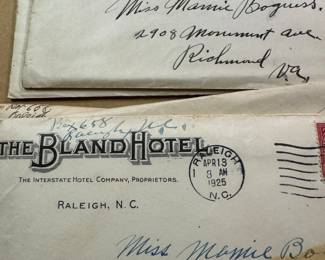 Miss Mamie Boguess.
2908 Monument ave.
Richmond
Va.
Box 658
Raleigh, N.C.
Box 658
Raleigh, N.C.
THE BLAND HOTEL
THE INTERSTATE HOTEL COMPANY, PROPRIETORS.
RALEIGH, N. C.
RALEIGH
APR 13
8 AM
1925
N.C.
Miss Mamie Bo